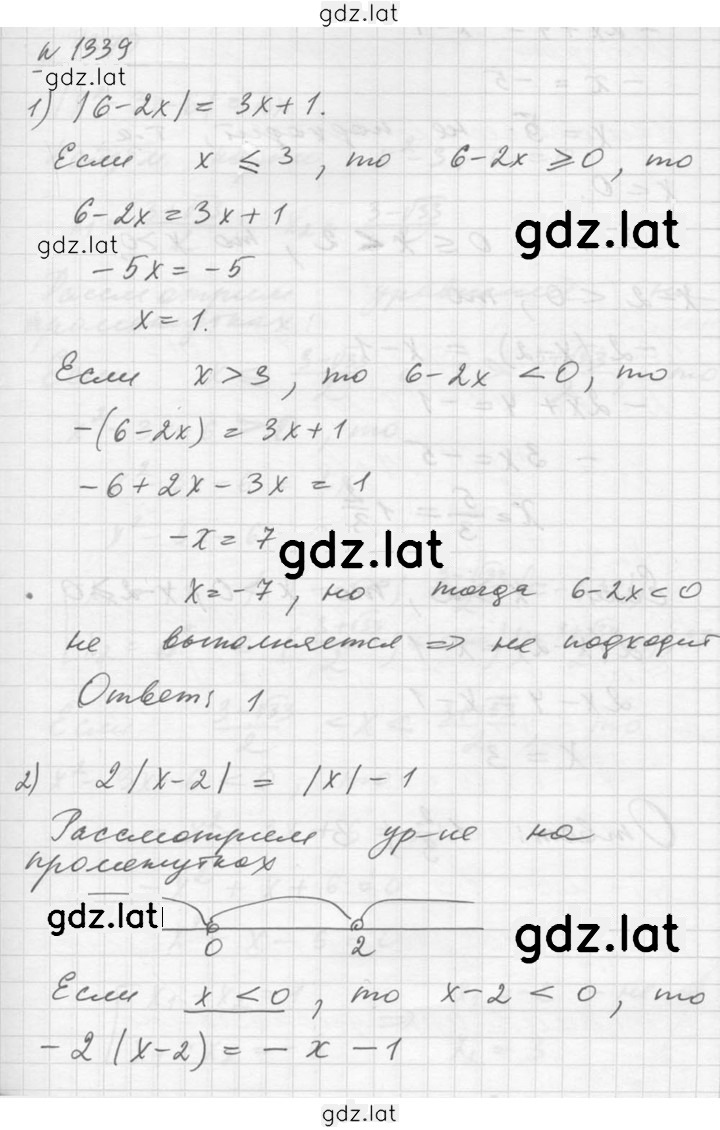 gdz.lat
N 1339
gdz.lat
1) |6-2x| = 3x+1.
Если x ⩽ 3, то 6-2x ⩾ 0, то
6-2x = 3x+1
gdz.lat
gdz.lat
-5x = -5
x = 1.
Если x > 3, то 6-2x < 0, то
-(6-2x) = 3x+1
-6+2x-3x = 1
-x = 7
gdz.lat
x = -7, но тогда 6-2x < 0
не выполняется => не подходит
Ответ: 1
2) 2|x-2| = |x|-1
Рассмотрим ур-ие на
промежутках
gdz.lat
0 2
gdz.lat
Если x < 0, то x-2 < 0, то
-2(x-2) = -x-1
gdz.lat